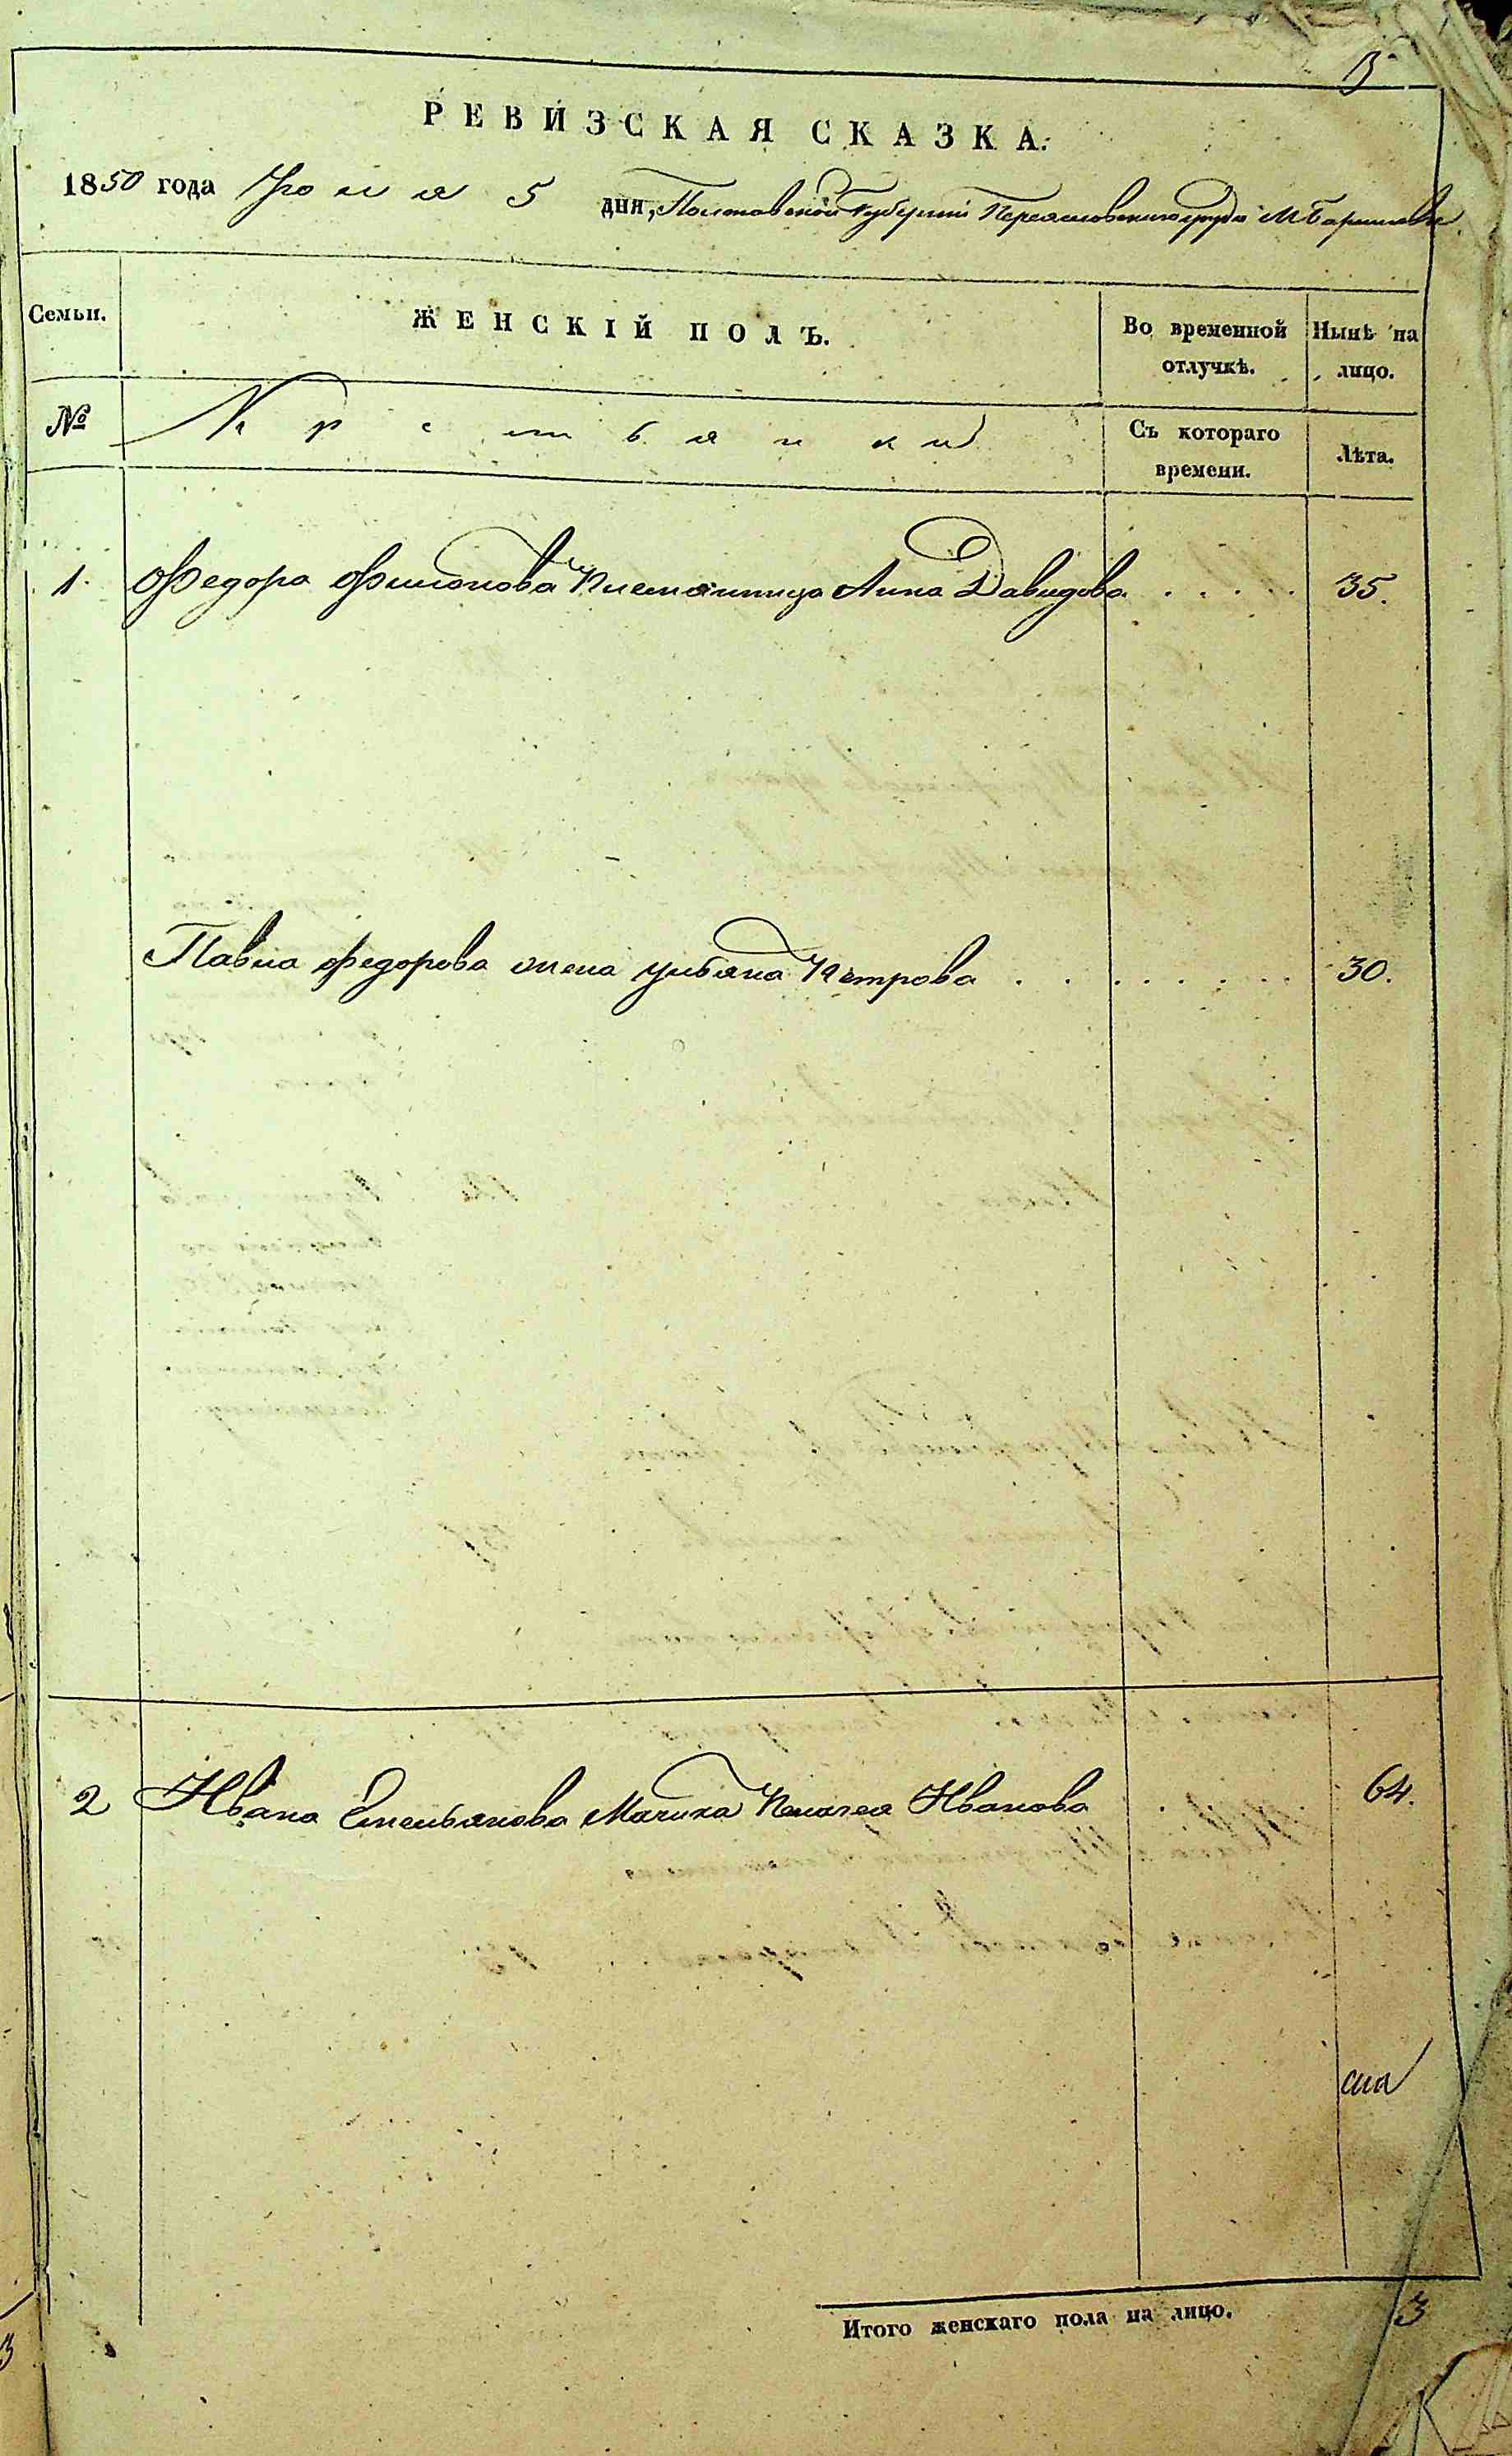 3
РЕВИЗСКАЯ СКАЗКА.
1850 года Июля 5 дня, Полтавской Губернии Переяславскаго уезда М Баришевки
Семьи. ЖЕНСКІЙ ПОЛЪ. Во временной отлучкѣ. Нынѣ на лицо.
№ Крестьянки Съ котораго времени. Лѣта.
1. Федора Филонова Племянница Анна Давидова . . . . . 35.
Павла Федорова жена Ульяна Петрова . . . . . . . . 30.
2 Ивана Емельянова Мачиха Пелагея Иванова . . 64.
Итого женскаго пола на лицо. 3